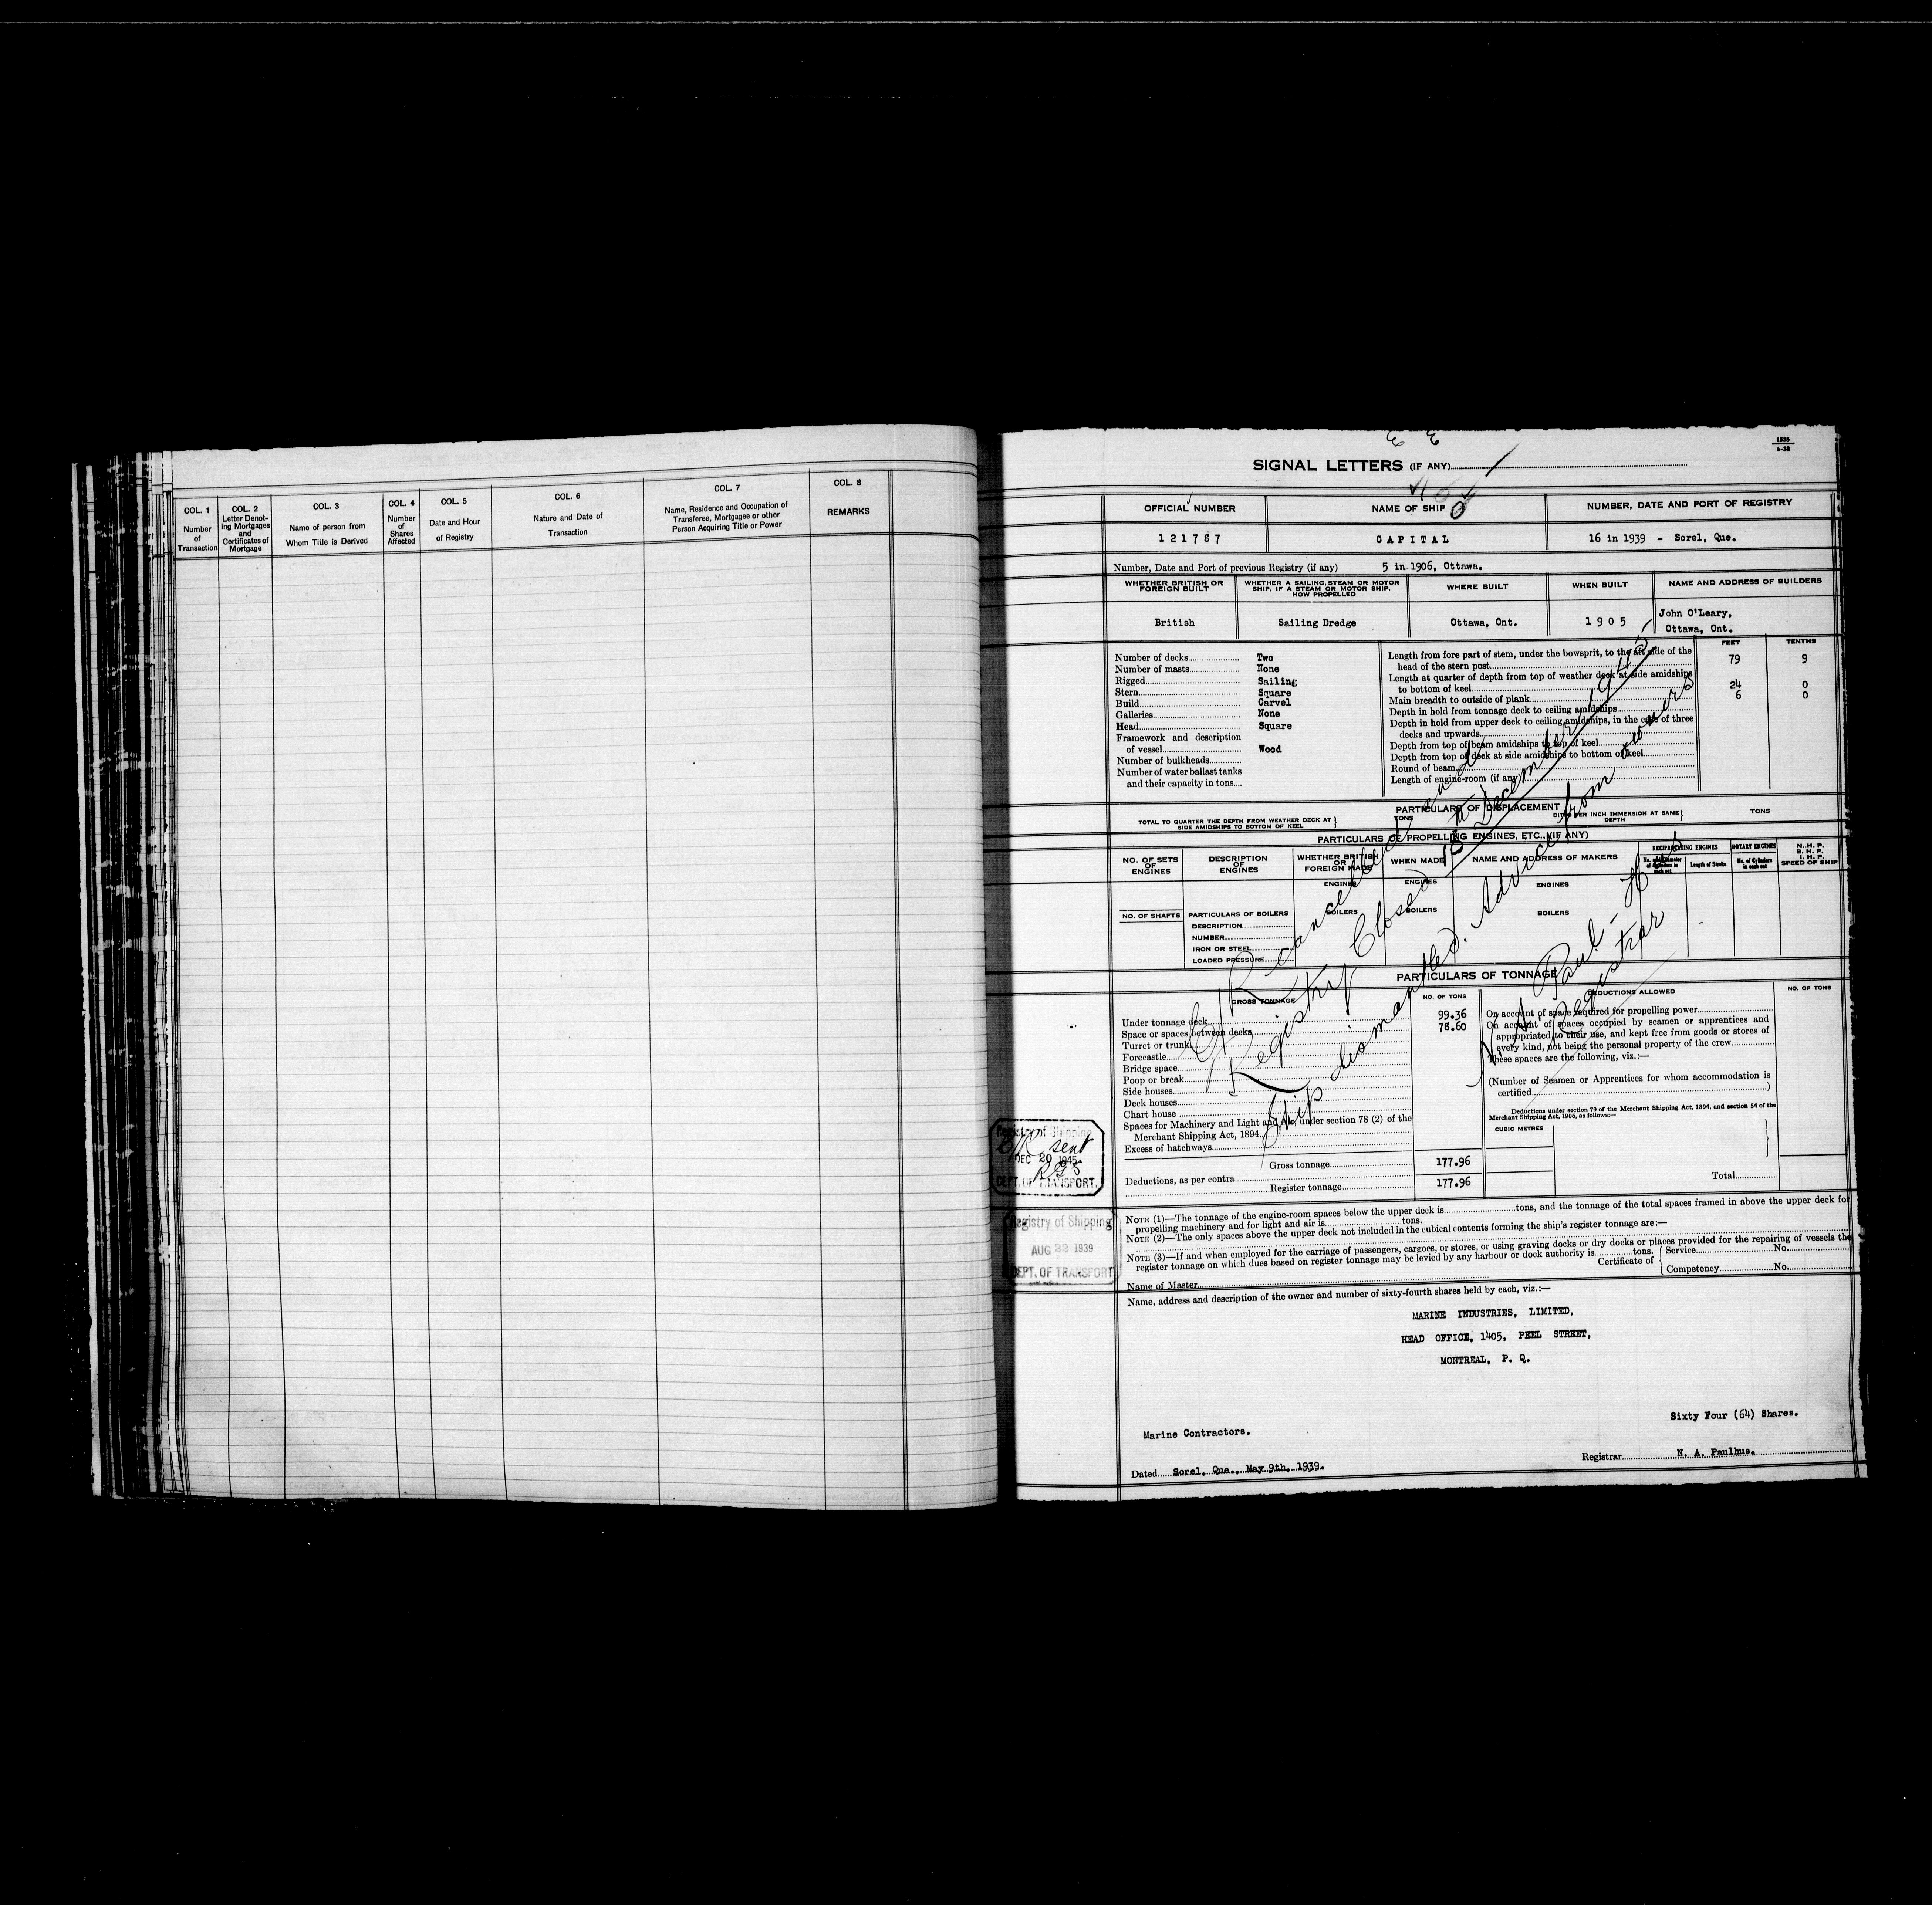 COL. 1
Number
of
Transaction
COL. 2
Letter Denot-
ing Mortgages
and
Certificates of
Mortgage
COL. 3
Name of person from
Whom Title is Derived
COL. 4
Number
of
Shares
Affected
COL. 5
Date and Hour
of Registry
COL. 6
Nature and Date of
Transaction
COL. 7
Name, Residence and Occupation of
Transferee, Mortgagee or other
Person Acquiring Title or Power
COL. 8
REMARKS
1535
6-38
SIGNAL LETTERS (IF ANY)
OFFICIAL NUMBER
NAME OF SHIP
NUMBER, DATE AND PORT OF REGISTRY
121787
CAPITAL
16 in 1939 - Sorel, Que.
Number, Date and Port of previous Registry (if any) 5 in 1906, Ottawa.
WHETHER BRITISH OR
FOREIGN BUILT
WHETHER A SAILING, STEAM OR MOTOR
SHIP, IF A STEAM OR MOTOR SHIP,
HOW PROPELLED
WHERE BUILT
WHEN BUILT
NAME AND ADDRESS OF BUILDERS
British
Sailing Dredge
Ottawa, Ont.
1905
John O'Leary,
Ottawa, Ont.
Number of decks Two
Number of masts None
Rigged Sailing
Stern Square
Build Carvel
Galleries None
Head Square
Framework and description
of vessel Wood
Number of bulkheads
Number of water ballast tanks
and their capacity in tons
FEET TENTHS
Length from fore part of stem, under the bowsprit, to the aft side of the
head of the stern post 79 9
Length at quarter of depth from top of weather deck at side amidships
to bottom of keel
Main breadth to outside of plank 24 0
Depth in hold from tonnage deck to ceiling amidships 6 0
Depth in hold from upper deck to ceiling amidships, in the case of three
decks and upwards
Depth from top of beam amidships to top of keel
Depth from top of deck at side amidships to bottom of keel
Round of beam
Length of engine-room (if any)
PARTICULARS OF DISPLACEMENT
TOTAL TO QUARTER THE DEPTH FROM WEATHER DECK AT
SIDE AMIDSHIPS TO BOTTOM OF KEEL
TONS
DITTO PER INCH IMMERSION AT SAME
DEPTH
TONS
PARTICULARS OF PROPELLING ENGINES, ETC., (IF ANY)
NO. OF SETS
OF
ENGINES
DESCRIPTION
OF
ENGINES
WHETHER BRITISH
OR
FOREIGN MADE
WHEN MADE
NAME AND ADDRESS OF MAKERS
RECIPROCATING ENGINES
No. and Diameter
of Cylinders in
each set
Length of Stroke
ROTARY ENGINES
No. of Cylinders
in each set
N. H. P.
B. H. P.
I. H. P.
SPEED OF SHIP
ENGINES
ENGINES
ENGINES
NO. OF SHAFTS
PARTICULARS OF BOILERS
BOILERS
BOILERS
BOILERS
DESCRIPTION
NUMBER
IRON OR STEEL
LOADED PRESSURE
C/R cancelled and
Registry Closed 15th December 1945
Ship dismantled. Advice from owners
N. A. Paul-Hus
Registrar
PARTICULARS OF TONNAGE
GROSS TONNAGE
NO. OF TONS
DEDUCTIONS ALLOWED
NO. OF TONS
Under tonnage deck 99.36
Space or spaces between decks 78.60
Turret or trunk
Forecastle
Bridge space
Poop or break
Side houses
Deck houses
Chart house
Spaces for Machinery and Light and Air, under section 78 (2) of the
Merchant Shipping Act, 1894
Excess of hatchways
Gross tonnage 177.96
Deductions, as per contra
Register tonnage 177.96
On account of space required for propelling power
On account of spaces occupied by seamen or apprentices and
appropriated to their use, and kept free from goods or stores of
every kind, not being the personal property of the crew
These spaces are the following, viz.:—
(Number of Seamen or Apprentices for whom accommodation is
certified)
Deductions under section 79 of the Merchant Shipping Act, 1894, and section 54 of the
Merchant Shipping Act, 1906, as follows:—
CUBIC METRES
Total
Registry of Shipping
C/R sent
DEC 20 1945
DEPT. OF TRANSPORT.
Registry of Shipping
AUG 22 1939
DEPT. OF TRANSPORT
NOTE (1)—The tonnage of the engine-room spaces below the upper deck is tons, and the tonnage of the total spaces framed in above the upper deck for
propelling machinery and for light and air is tons.
NOTE (2)—The only spaces above the upper deck not included in the cubical contents forming the ship's register tonnage are:—
NOTE (3)—If and when employed for the carriage of passengers, cargoes, or stores, or using graving docks or dry docks or places provided for the repairing of vessels the
register tonnage on which dues based on register tonnage may be levied by any harbour or dock authority is tons.
Certificate of
Service No.
Competency No.
Name of Master
Name, address and description of the owner and number of sixty-fourth shares held by each, viz.:—
MARINE INDUSTRIES, LIMITED,
HEAD OFFICE, 1405, PEEL STREET,
MONTREAL, P. Q.
Sixty Four (64) Shares.
Marine Contractors.
Dated Sorel, Que., May 9th. 1939.
Registrar N. A. Paulhus.